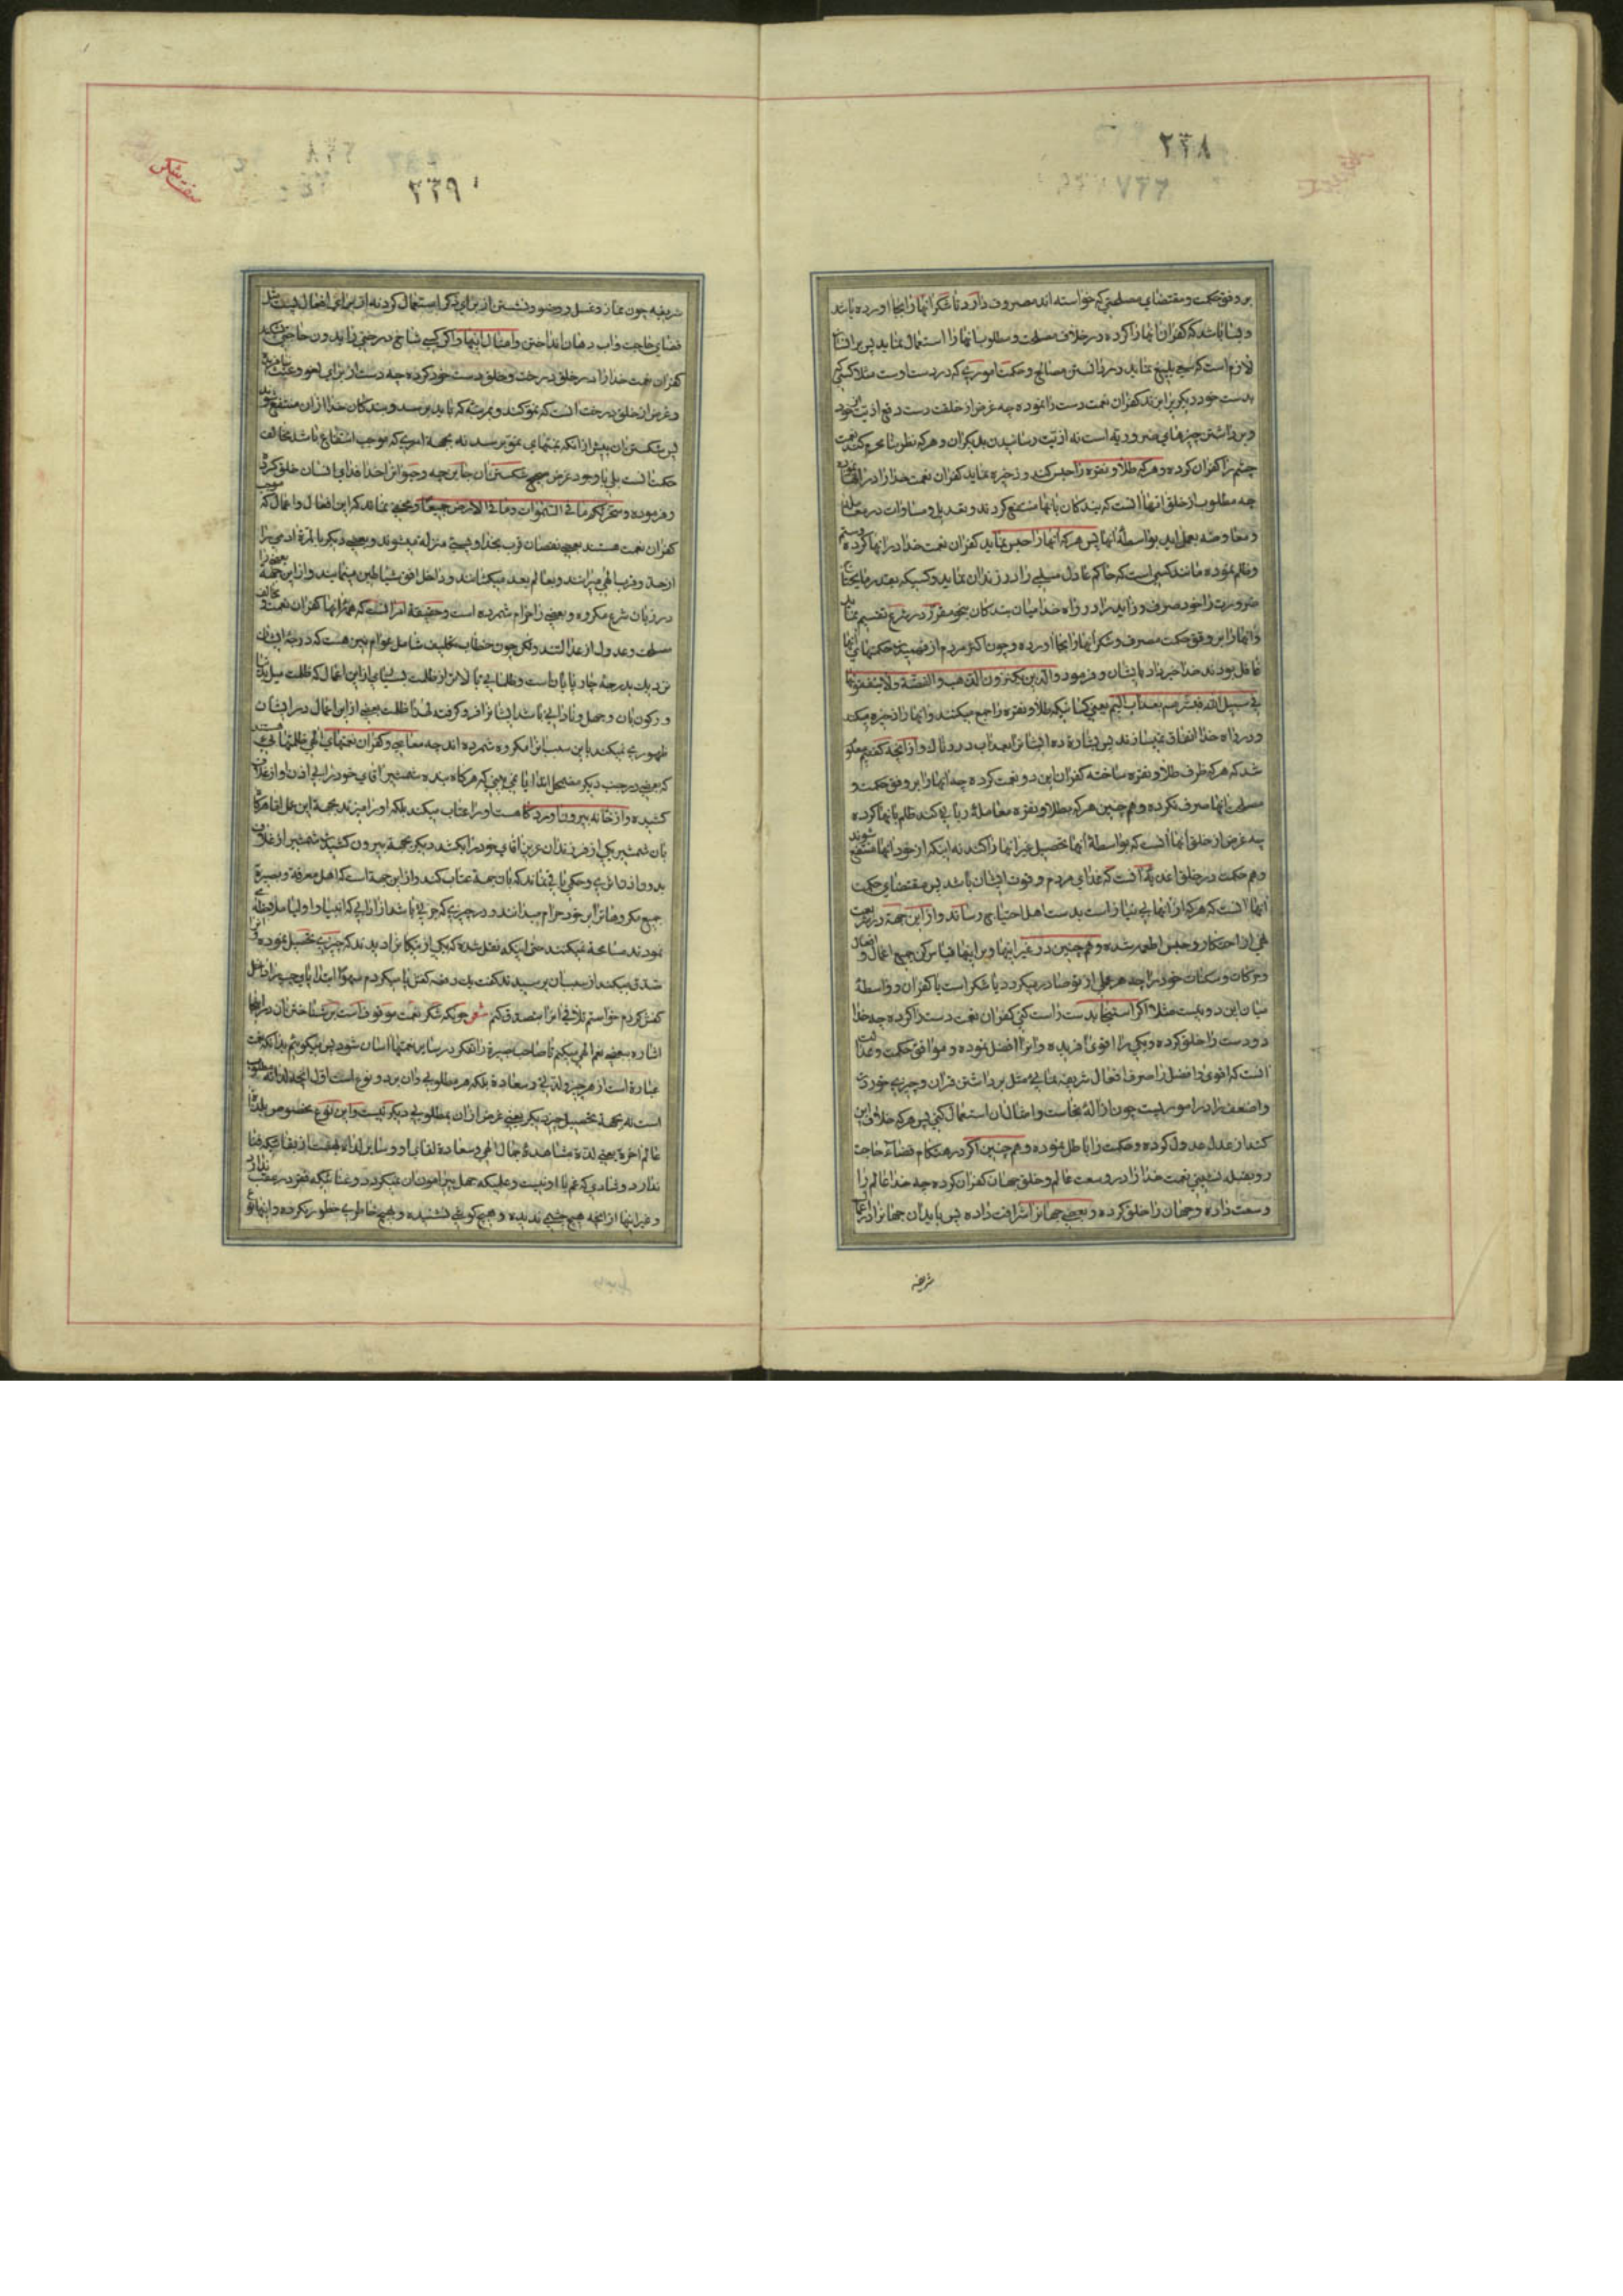 ۲۳۸
بر وفق حکمت و مقتضای مصلحتی که خواسته اند مصروف دارد تا شکر انها را بجا اورده باشد
و بسا باشد که کفران انها را کرده در خلاف مصلحت و مطلوب انها را استعمال نماید پس بر انسان
لازم است که سعی بلیغ نماید در دانستن مصالح و حکمت اموری که در دست اوست مثلا کسی که
بدست خود دیگری را بزند کفران نعمت دست را نموده چه غرض از خلقت دست دفع اذیت از خود
و برداشتن چیزهای ضروریه است نه اذیت رسانیدن بدیگران و هر که نظر بنا محرم کند نعمت
چشم را کفران کرده و هر که طلا و نقره را حبس کند و ذخیره نماید کفران نعمت خدا را در انها نموده
چه مطلوب از خلق انها انست که بندکان بانها منتفع کردند و تعدیل و مساوات در معاملات
و معاوضه بعمل اید بواسطهٔ انها پس هر که انها را حبس نماید کفران نعمت خدا در انها کرده و ستم
و ظلم نموده مانند کسی است که حاکم عادل مسلمی را در زندان نماید و کسیکه بقدر ما یحتاج
ضرورت را خود صرف و زاید را در راه خدا میان بندکان بنحو مقرر در شرع تقسیم نماید
و انها را بر وفق حکمت مصرف و شکر انها را بجا اورده و چون اکثر مردم از فهمیدن حکمتهای انها
غافل بودند خدا خبر داد بایشان و فرمود و الذین یکنزون الذهب و الفضّة و لا ینفقونها
فی سبیل الله فبشّرهم بعذاب الیم یعنی کسانیکه طلا و نقره را جمع میکنند و انها را ذخیره میکنند
و در راه خدا انفاق نمیسازند پس بشارت ده ایشانرا بعذاب دردناک و از انچه کفتیم معلوم
شد که هر که ظرف طلا و نقره ساخته کفران این دو نعمت کرده چه انها را بر وفق حکمت و
مصلحت انها صرف نکرده و هم چنین هر که بطلا و نقره معاملهٔ ربائی کند ظلم بانها کرده
چه غرض از خلق انها انست که بواسطهٔ انها تحصیل غیر انها را کنند نه اینکه از خود انها منتفع شوند
و هم حکمت در خلق اغذیه انست که غذای مردم و قوت ایشان باشد پس مقتضای حکمت
انها انست که هر که از انها بی نیاز است بدست اهل احتیاج رساند و از این جهة در شریعت
نهی از احتکار و حبس اطعمه شده و هم چنین در غیر اینها و بر اینها قیاس کن جمیع اعمال و افعال
و حرکات و سکنات خود را چه هر عملی از تو صادر میکردد یا شکر است یا کفران و واسطهٔ
میان این دو نیست مثلا اکر استنجا بدست راست کنی کفران نعمت دست را کرده چه خدا
دو دست را خلق کرده و یکی را اقوی افریده و انرا افضل نموده و موافق حکمت و عدالت
انست که اقوی و افضل را صرف افعال شریفه نمائی مثل برداشتن قران و چیزی خوردن
و اضعف را در امور پست چون ازالهٔ نجاست و امثال ان استعمال کنی پس هر که خلاف این
کند از عدل عدول کرده و حکمت را باطل نموده و هم چنین اکر در هنکام قضاء حاجت
رو بقبله نشینی نعمت خدا را در وسعت عالم و خلق جهات کفران کرده چه خدا عالم را
وسعت داده و جهات را خلق کرده و بعضی جهاترا شرافت داده پس باید ان جهاترا در اعمال
شریفه
۲۳۹
شریفه چون نماز و غسل و وضو و نشستن از برای ذکر استعمال کرد نه از برای افعال پست مثل
قضای حاجت و اب دهان انداختن و امثال اینها و اکر کسی شاخ درختی را بدون حاجتی بشکند
کفران نعمت خدا را در خلق درخت و خلق دست خود کرده چه دست از برای لهو و عبث نیافریده
و غرض از خلق درخت انست که نمو کند و بمرتبه که باید برسد و بندکان خدا از ان منتفع شوند
پس شکستن ان پیش از انکه بمنتهای نمو برسد نه بجهة امری که موجب انتفاع باشد مخالف
حکمت است بلی با وجود غرض صحیح شکستن ان جایز چه و حیوانرا خدا فدای انسان خلق کرده
و فرموده و سخّر لکم ما فی السّموات و ما فی الارض جمیعًا و مخفی نماند که این افعال و اعمال که موجب
کفران نعمت هستند بعضی نقصان قرب بخدا و پستی منزله میشوند و بعضی دیکر بالمرة ادمی را
از حد و قرب الهی میرانند و بعالم بعد میکشانند و داخل افق شیاطین مینمایند و از این جهة بعضی را
در زبان شرع مکروه و بعضی را حرام شمرده است و حقیقة امر انست که همهٔ انها کفران نعمت و مخالف
مصلحت و عدول از عدالتند ولکن چون خطاب تکلیف شامل عوام نیز هست که درجهٔ ایشان
نزدیک بدرجهٔ چارپایانست و ظلماتی بالاتر از ظلمت بسیاری از این اعمال که ظلمت میل بدنیا
و رکون بان و جهل و نادانی باشد ایشانرا فرو کرفته لهذا ظلمت بعضی از این اعمال در ایشان
ظهوری نمیکند باین سبب انرا مکروه شمرده اند چه معاصی و کفران نعمتهای الهی ظلمتهائی هستند
که بعضی در جنب دیکر مضمحل اند ایا نمی بینی که هر کاه بنده شمشیر اقای خود را بی اذن او از غلاف
کشیده و از خانه بیرون اورد کاه هست او را عتاب میکند بلکه او را میزند بجهة این عمل اما هر کاه
بان شمشیر یکی از فرزندان عزیز اقای خود را بکشد دیکر بجهة بیرون کشیدن شمشیر از غلاف
جمیع مکروهاترا بر خود حرام میدانند و در چیزی که جزئی باشد از ادابی که انبیا و اولیا ملاحظه
نمودند مسامحه نمیکنند حتی اینکه نقل شده که یکی از نیکانرا دیدند که چیزی تحصیل نموده و انرا
تصدق میکند از سبب ان پرسیدند کفت یک دفعه کفش بپا میکردم سهوًا ابتدا پای چپ را داخل
کفش کردم خواستم تلافی انرا بتصدق کنم چونکه شکر نعمت موقوف است بر شناختن ان در اینجا
اشاره ببعضی نعم الهی میکنم تا صاحب بصیرة را تفکر در سایر نعمتها اسان شود پس میکوئیم بدانکه نعمت
عبارة است از هر چیز و لذتی و سعادة بلکه هر مطلوبی و ان بر دو نوع است اول انچه لذاته مطلوب
است نه بجهة تحصیل چیز دیکر یعنی غرض از ان مطلوبی دیکر نیست و این نوع مخصوص بلذات
عالم اخرة یعنی لذة مشاهدهٔ جمال الهی و سعادة لقای او و سایر لذات بهشت از بقائیکه فنا
ندارد و شادی که غم با او نیست و علمیکه جهل پیرامون ان نمیکردد و غنائیکه فقر در عقب ندارد
و غیر اینها از انچه هیچ چشمی ندیده و هیچ کوشی نشنیده و بهیچ خاطری خطور نکرده و اینها نوع